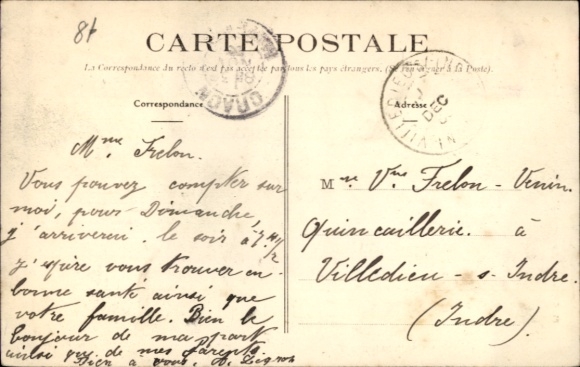 81
CARTE POSTALE
La Correspondance du recto n'est pas acceptée par tous les pays étrangers. (Se renseigner à la Poste).
CRAON
DEC
Correspondance
Adresse
Mme Frelon.
Vous pouvez compter sur
moi, pour Dimanche,
j'arriverai le soir à 7h 1/2
j'espère vous trouver en
bonne santé ainsi que
votre famille. Bien le
bonjour de ma part
ainsi que de mes parents
Bien à vous,
Mme Vve Frelon-Venin
Quincaillerie à
Villedieu-s-Indre
(Indre).